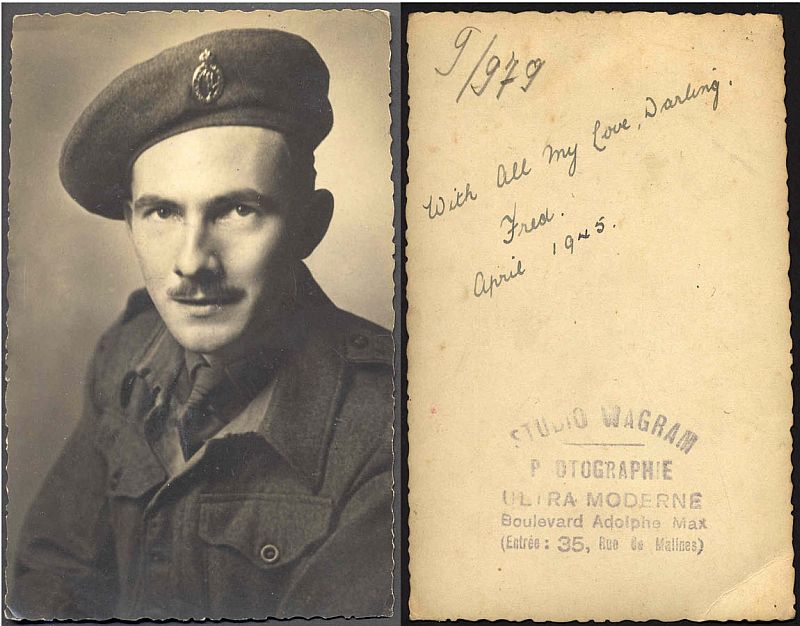 9/979
With All My Love, Darling.
Fred.
April 1945.
STUDIO WAGRAM
PHOTOGRAPHIE
ULTRA-MODERNE
Boulevard Adolphe Max
(Entrée : 35, Rue de Malines)